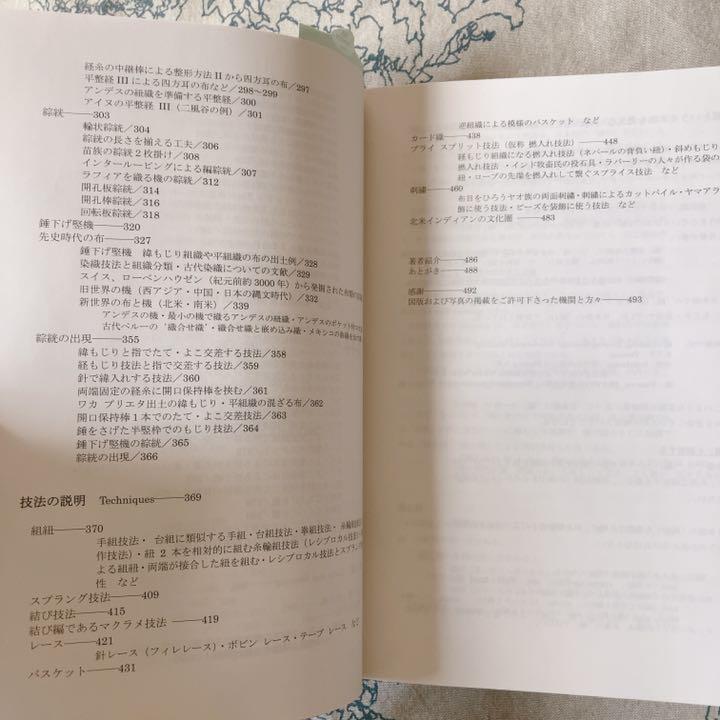 経糸の中継棒による整形方法 II から四方耳の布／297
平整経 III による四方耳の布など／298～299
アンデスの紐織を準備する平整経／300
アイヌの平整経 III（二風谷の例）／301
綜絖――303
輪状綜絖／304
綜絖の長さを揃える工夫／306
苗族の綜絖 2 枚掛け／308
インタールーピングによる編綜絖／310
ラフィアを織る機の綜絖／312
開孔板綜絖／314
開孔棒綜絖／316
回転板綜絖／318
錘下げ竪機――320
先史時代の布――327
錘下げ竪機 緯もじり組織や平組織の布の出土例／328
染織技法と組織分類・古代染織についての文献／329
スイス、ローベンハウゼン（紀元前約 3000 年）から発掘された
旧世界の機（西アジア・中国・日本の縄文時代）／332
新世界の布と機（北米・南米）／339
アンデスの機・最小の機で織るアンデスの紐織・アンデスのポケット
古代ペルーの‘織合せ織’・織合せ織と嵌め込み織・メキシコの
綜絖の出現――355
緯もじりと指でたて・よこ交差する技法／358
経もじり技法と指で交差する技法／359
針で緯入れする技法／360
両端固定の経糸に開口保持棒を挟む／361
ワカ プリエタ出土の緯もじり・平組織の混ざる布／362
開口保持棒 1 本でのたて・よこ交差技法／363
錘をさげた半竪枠でのもじり技法／364
錘下げ竪機の綜絖／365
綜絖の出現／366
技法の説明 Techniques――369
組紐――370
手組技法・ 台組に類似する手組・台組技法・拳組技法・ 糸輪組技
作技法）・紐 2 本を相対的に組む糸輪組技法（レシプロカル技
よる組紐・両端が接合した紐を組む・レシプロカル技法とスプラング
性 など
スプラング技法――409
結び技法――415
結び編であるマクラメ技法 ――419
レース――421
針レース（フィレレース）・ボビン レース・テープ レース など
バスケット――431
逆組織による模様のバスケット など
カード織――438
プライ スプリット技法（仮称 撚入れ技法）――448
経もじり組織になる撚入れ技法（ネパールの背負い紐）・斜めもじり
撚入れ技法 ・インド牧畜民の投石具・ラバーリーの人々が作る袋の
紐・ロープの先端を撚入れして繋ぐスプライス技法 など
刺繍――460
布目をひろうヤオ族の両面刺繍・刺繍によるカットパイル・ヤマアラ
飾に使う技法・ビーズを装飾に使う技法 など
北米インディアンの文化圏 ――483
著者紹介――486
あとがき――488
感謝――492
図版および写真の掲載をご許可下さった機関と方々――493